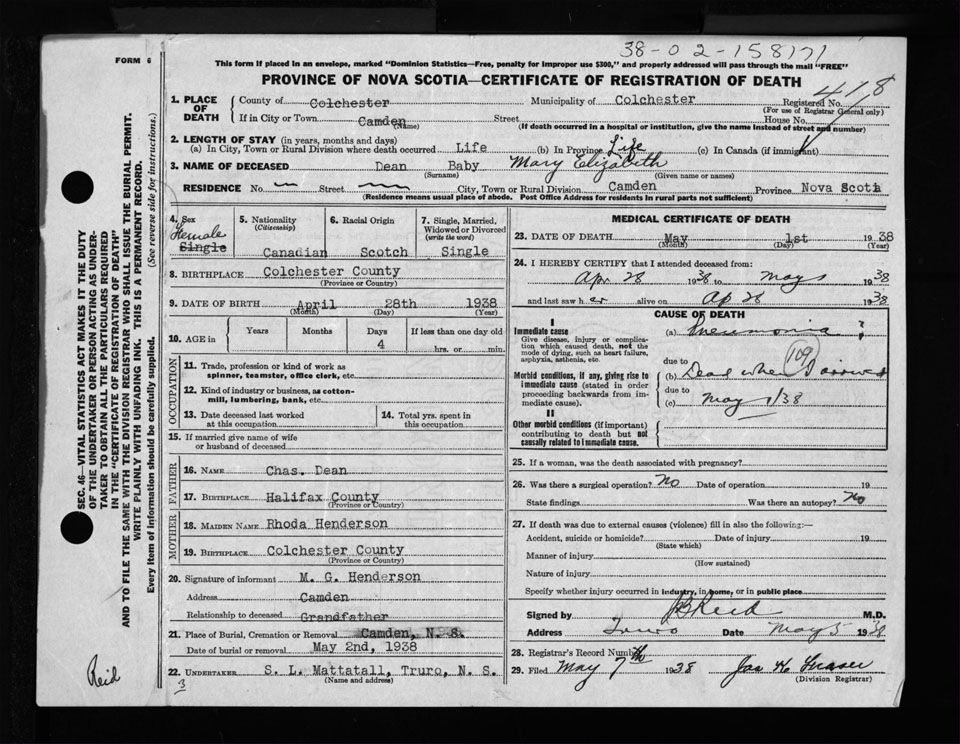 38-02-158171
FORM 6
This form if placed in an envelope, marked "Dominion Statistics—Free, penalty for improper use $300," and properly addressed will pass through the mail "FREE"
PROVINCE OF NOVA SCOTIA—CERTIFICATE OF REGISTRATION OF DEATH
418
1. PLACE OF DEATH
County of Colchester Municipality of Colchester Registered No.
(For use of Registrar General only)
If in City or Town Camden Street House No.
(Name) (If death occurred in a hospital or institution, give the name instead of street and number)
2. LENGTH OF STAY (in years, months and days)
(a) In City, Town or Rural Division where death occurred Life (b) In Province Life (c) In Canada (if immigrant)
3. NAME OF DECEASED Dean Baby Mary Elizabeth
(Surname) (Given name or names)
RESIDENCE No. Street City, Town or Rural Division Camden Province Nova Scoti
(Residence means usual place of abode. Post Office Address for residents in rural parts not sufficient)
4. Sex Female Single
5. Nationality (Citizenship) Canadian
6. Racial Origin Scotch
7. Single, Married, Widowed or Divorced (write the word) Single
8. BIRTHPLACE Colchester County
(Province or Country)
9. DATE OF BIRTH April 28th 1938
(Month) (Day) (Year)
10. AGE in Years Months Days 4 If less than one day old hrs. or min.
OCCUPATION
11. Trade, profession or kind of work as spinner, teamster, office clerk, etc.
12. Kind of industry or business, as cotton-mill, lumbering, bank, etc.
13. Date deceased last worked at this occupation
14. Total yrs. spent in this occupation
15. If married give name of wife or husband of deceased
FATHER
16. NAME Chas. Dean
17. BIRTHPLACE Halifax County
(Province or Country)
MOTHER
18. MAIDEN NAME Rhoda Henderson
19. BIRTHPLACE Colchester County
(Province or Country)
20. Signature of informant M. G. Henderson
Address Camden
Relationship to deceased Grandfather
21. Place of Burial, Cremation or Removal Camden, N. S.
Date of burial or removal May 2nd, 1938
22. UNDERTAKER S. L. Mattatall, Truro, N. S.
(Name and address)
3
MEDICAL CERTIFICATE OF DEATH
23. DATE OF DEATH May 1st 1938
(Month) (Day) (Year)
24. I HEREBY CERTIFY that I attended deceased from:
Apr 28 1938 to May 1 1938
and last saw her alive on Ap 28 1938
CAUSE OF DEATH
I
Immediate cause
Give disease, injury or complication which caused death, not the mode of dying, such as heart failure, asphyxia, asthenia, etc.
(a) Pneumonia ?
due to
109
Morbid conditions, if any, giving rise to immediate cause (stated in order proceeding backwards from immediate cause).
(b) Dead when I arrived
due to
(c) May 1/38
II
Other morbid conditions (if important) contributing to death but not causally related to immediate cause.
25. If a woman, was the death associated with pregnancy?
26. Was there a surgical operation? No Date of operation 19
State findings Was there an autopsy? No
27. If death was due to external causes (violence) fill in also the following:—
Accident, suicide or homicide? Date of injury 19
(State which)
Manner of injury
(How sustained)
Nature of injury
Specify whether injury occurred in industry, in home, or in public place
Signed by Reid M.D.
Address Truro Date May 5 1938
28. Registrar's Record Number
29. Filed May 7th 1938 Jas H. Fraser
(Division Registrar)
SEC. 46—VITAL STATISTICS ACT MAKES IT THE DUTY
OF THE UNDERTAKER OR PERSON ACTING AS UNDER-
TAKER TO OBTAIN ALL THE PARTICULARS REQUIRED
IN THE "CERTIFICATE OF REGISTRATION OF DEATH"
AND TO FILE THE SAME WITH THE DIVISION REGISTRAR WHO SHALL ISSUE THE BURIAL PERMIT.
WRITE PLAINLY WITH UNFADING INK. THIS IS A PERMANENT RECORD.
Every item of information should be carefully supplied. (See reverse side for instructions.)
Reid